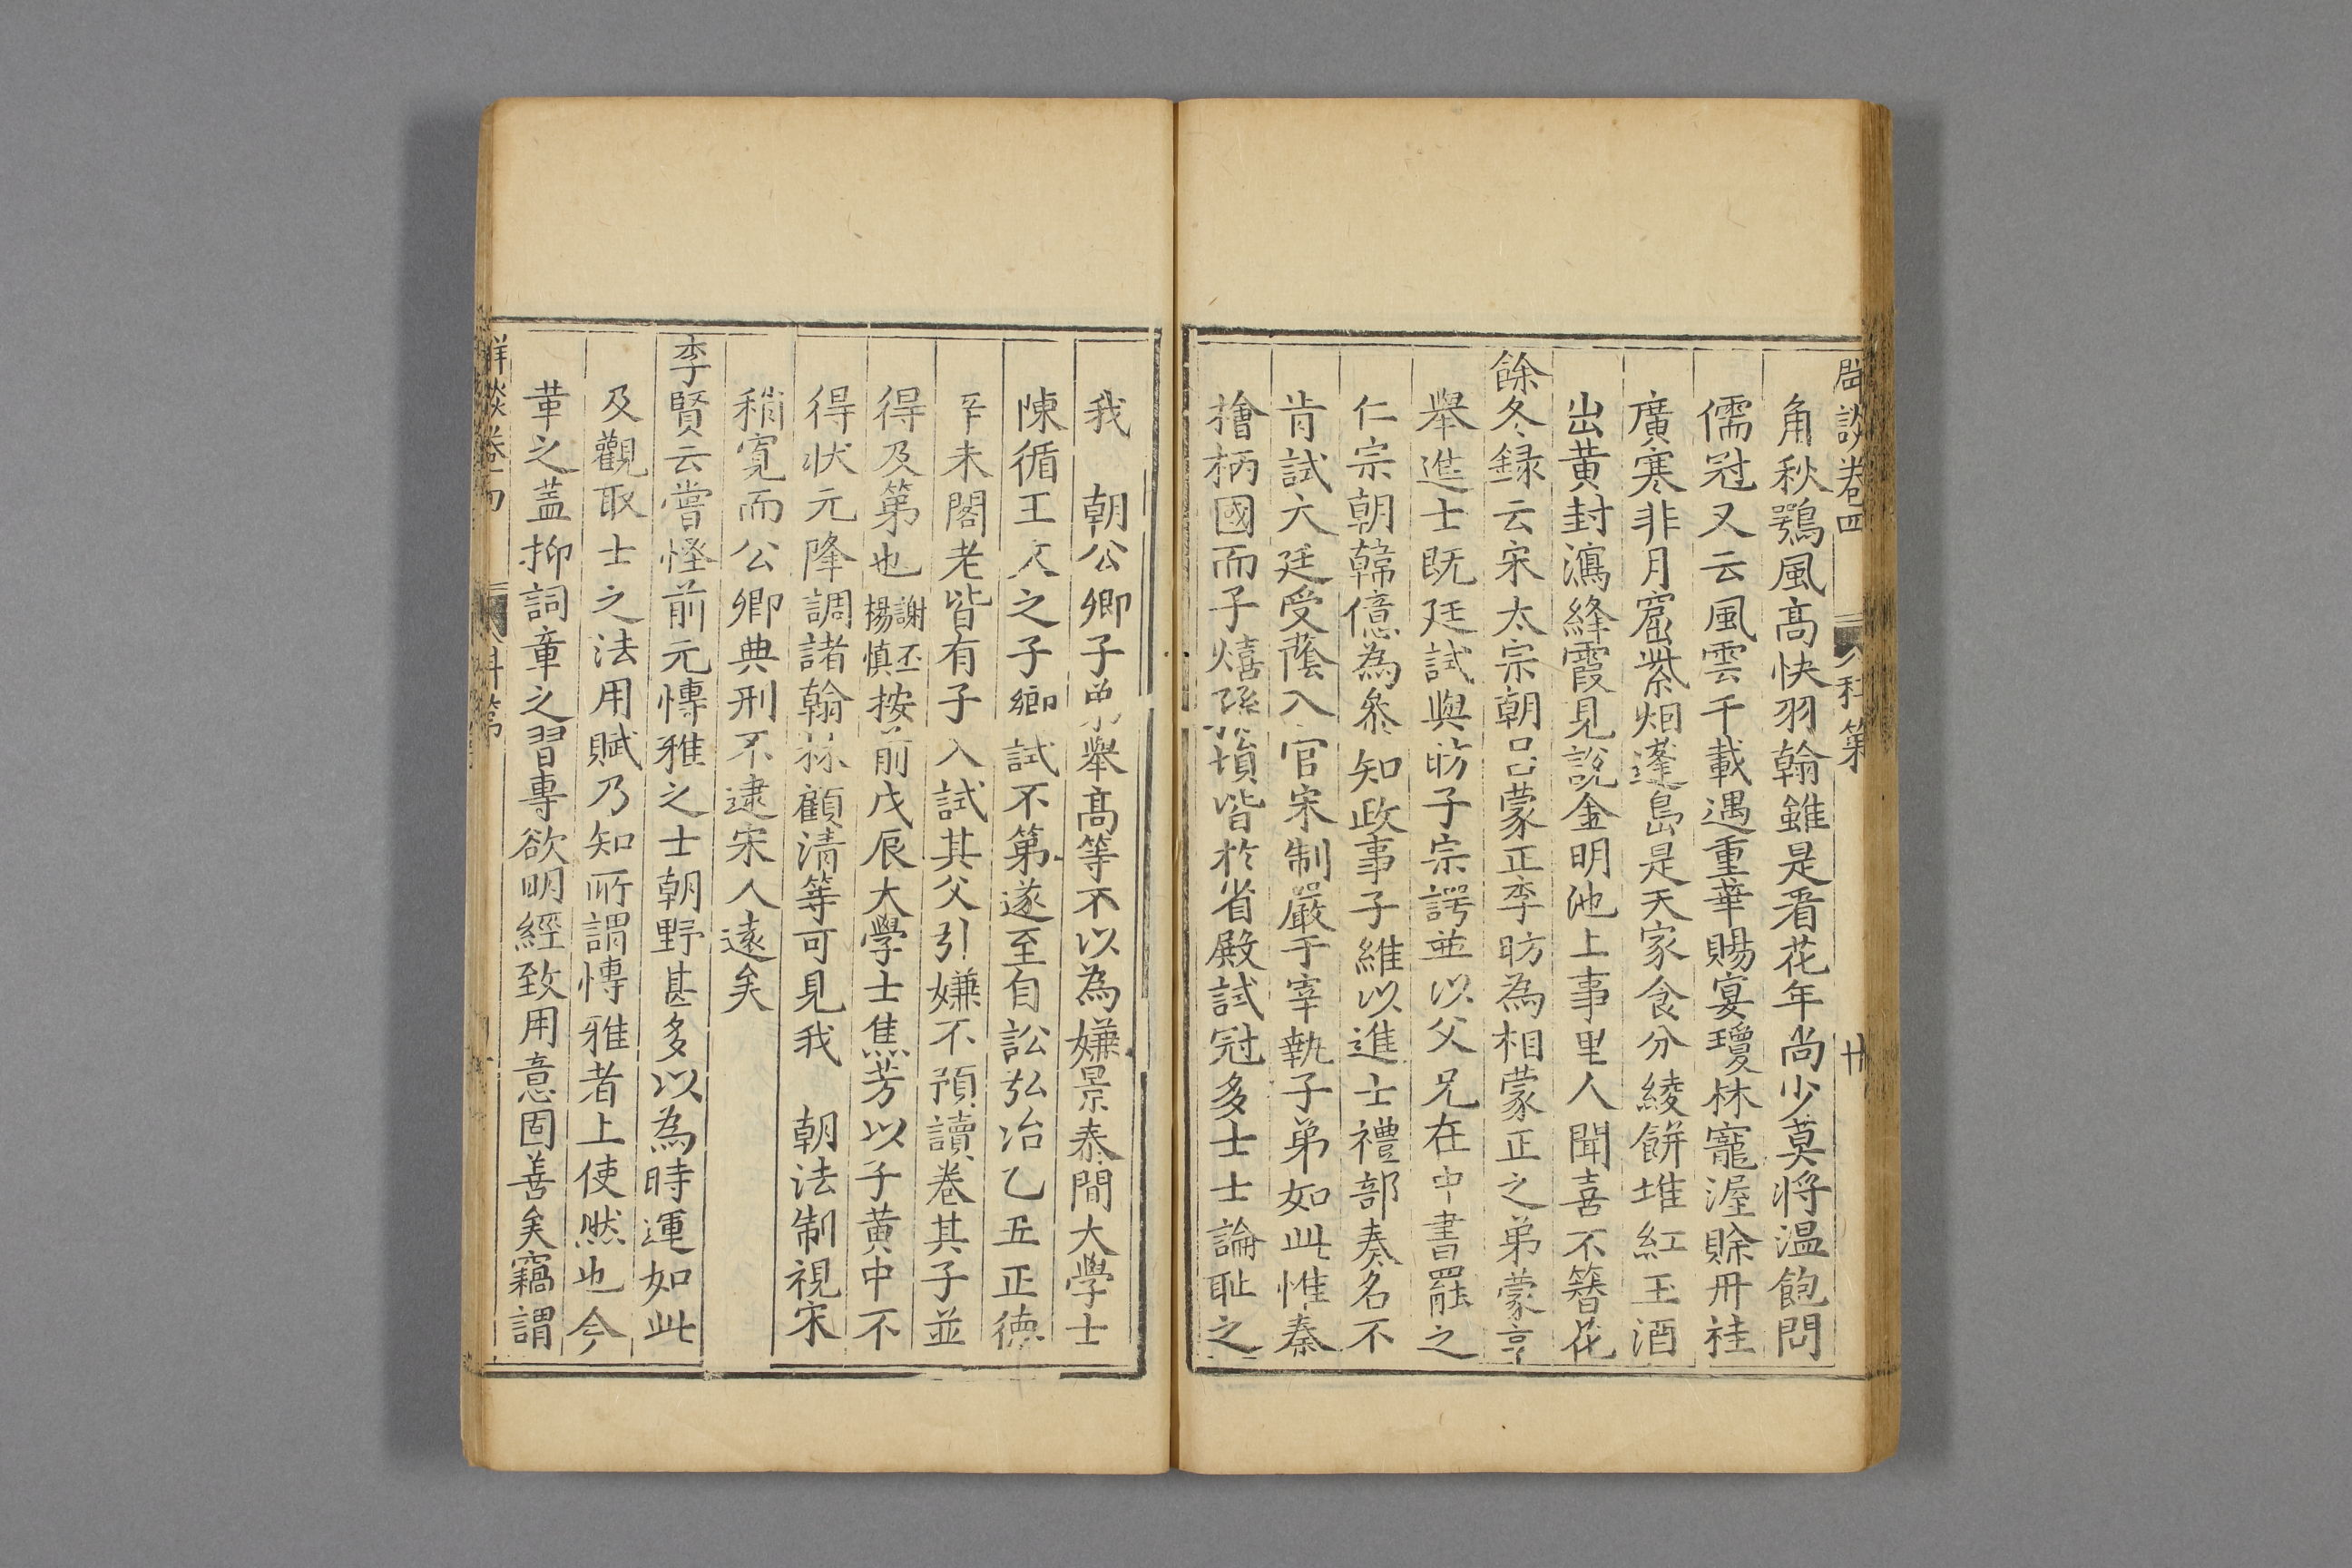 談卷四 科第 廿
角秋鶚風高快羽翰雖是看花年尚少莫將温飽問
儒冠又云風雲千載遇重華賜宴瓊林寵渥賒丹桂
廣寒非月窟紫烟蓬島是天家食分綾餅堆紅玉酒
出黄封瀉絳霞見説金明池上事里人聞喜不簪花
餘冬録云宋太宗朝吕蒙正李昉為相蒙正之弟蒙亨
舉進士既廷試與昉子宗諤並以父兄在中書罷之
仁宗朝韓億為叅知政事子維以進士禮部奏名不
肯試大廷受蔭入官宋制嚴于宰執子弟如此惟秦
檜柄國而子熺孫塤皆於省殿試冠多士士論耻之
我 朝公卿子弟舉高等不以為嫌景泰間大學士
陳循王文之子鄉試不第遂至自訟弘治乙丑正德
辛未閣老皆有子入試其父引嫌不預讀卷其子並
得及第也謝丕楊慎按前戊辰大學士焦芳以子黄中不
得状元降調諸翰林顧清等可見我 朝法制視宋
稍寛而公卿典刑不逮宋人遠矣
李賢云嘗怪前元愽雅之士朝野甚多以為時運如此
及觀取士之法用賦乃知所謂愽雅者上使然也今
革之盖抑詞章之習專欲明經致用意固善矣竊謂
群談卷四 科第